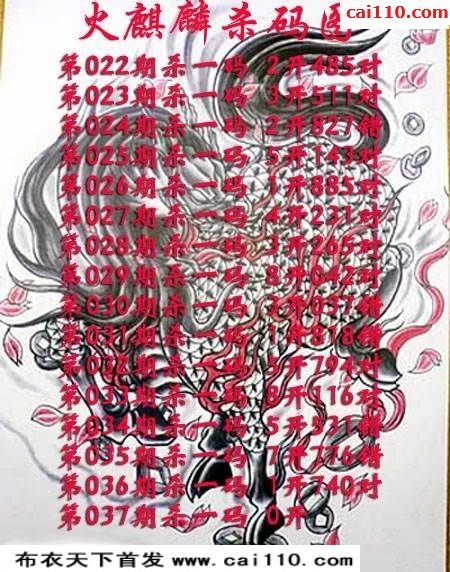 cai110.com
火麒麟杀码区
第022期杀一码 2开485对
第023期杀一码 3开511对
第024期杀一码 2开827错
第025期杀一码 5开143对
第026期杀一码 1开885对
第027期杀一码 4开231对
第028期杀一码 3开265对
第029期杀一码 8开042对
第030期杀一码 3开037错
第031期杀一码 1开818错
第032期杀一码 5开794对
第033期杀一码 8开116对
第034期杀一码 5开531错
第035期杀一码 7开776错
第036期杀一码 1开740对
第037期杀一码 0开
布衣天下首发 www.cai110.com